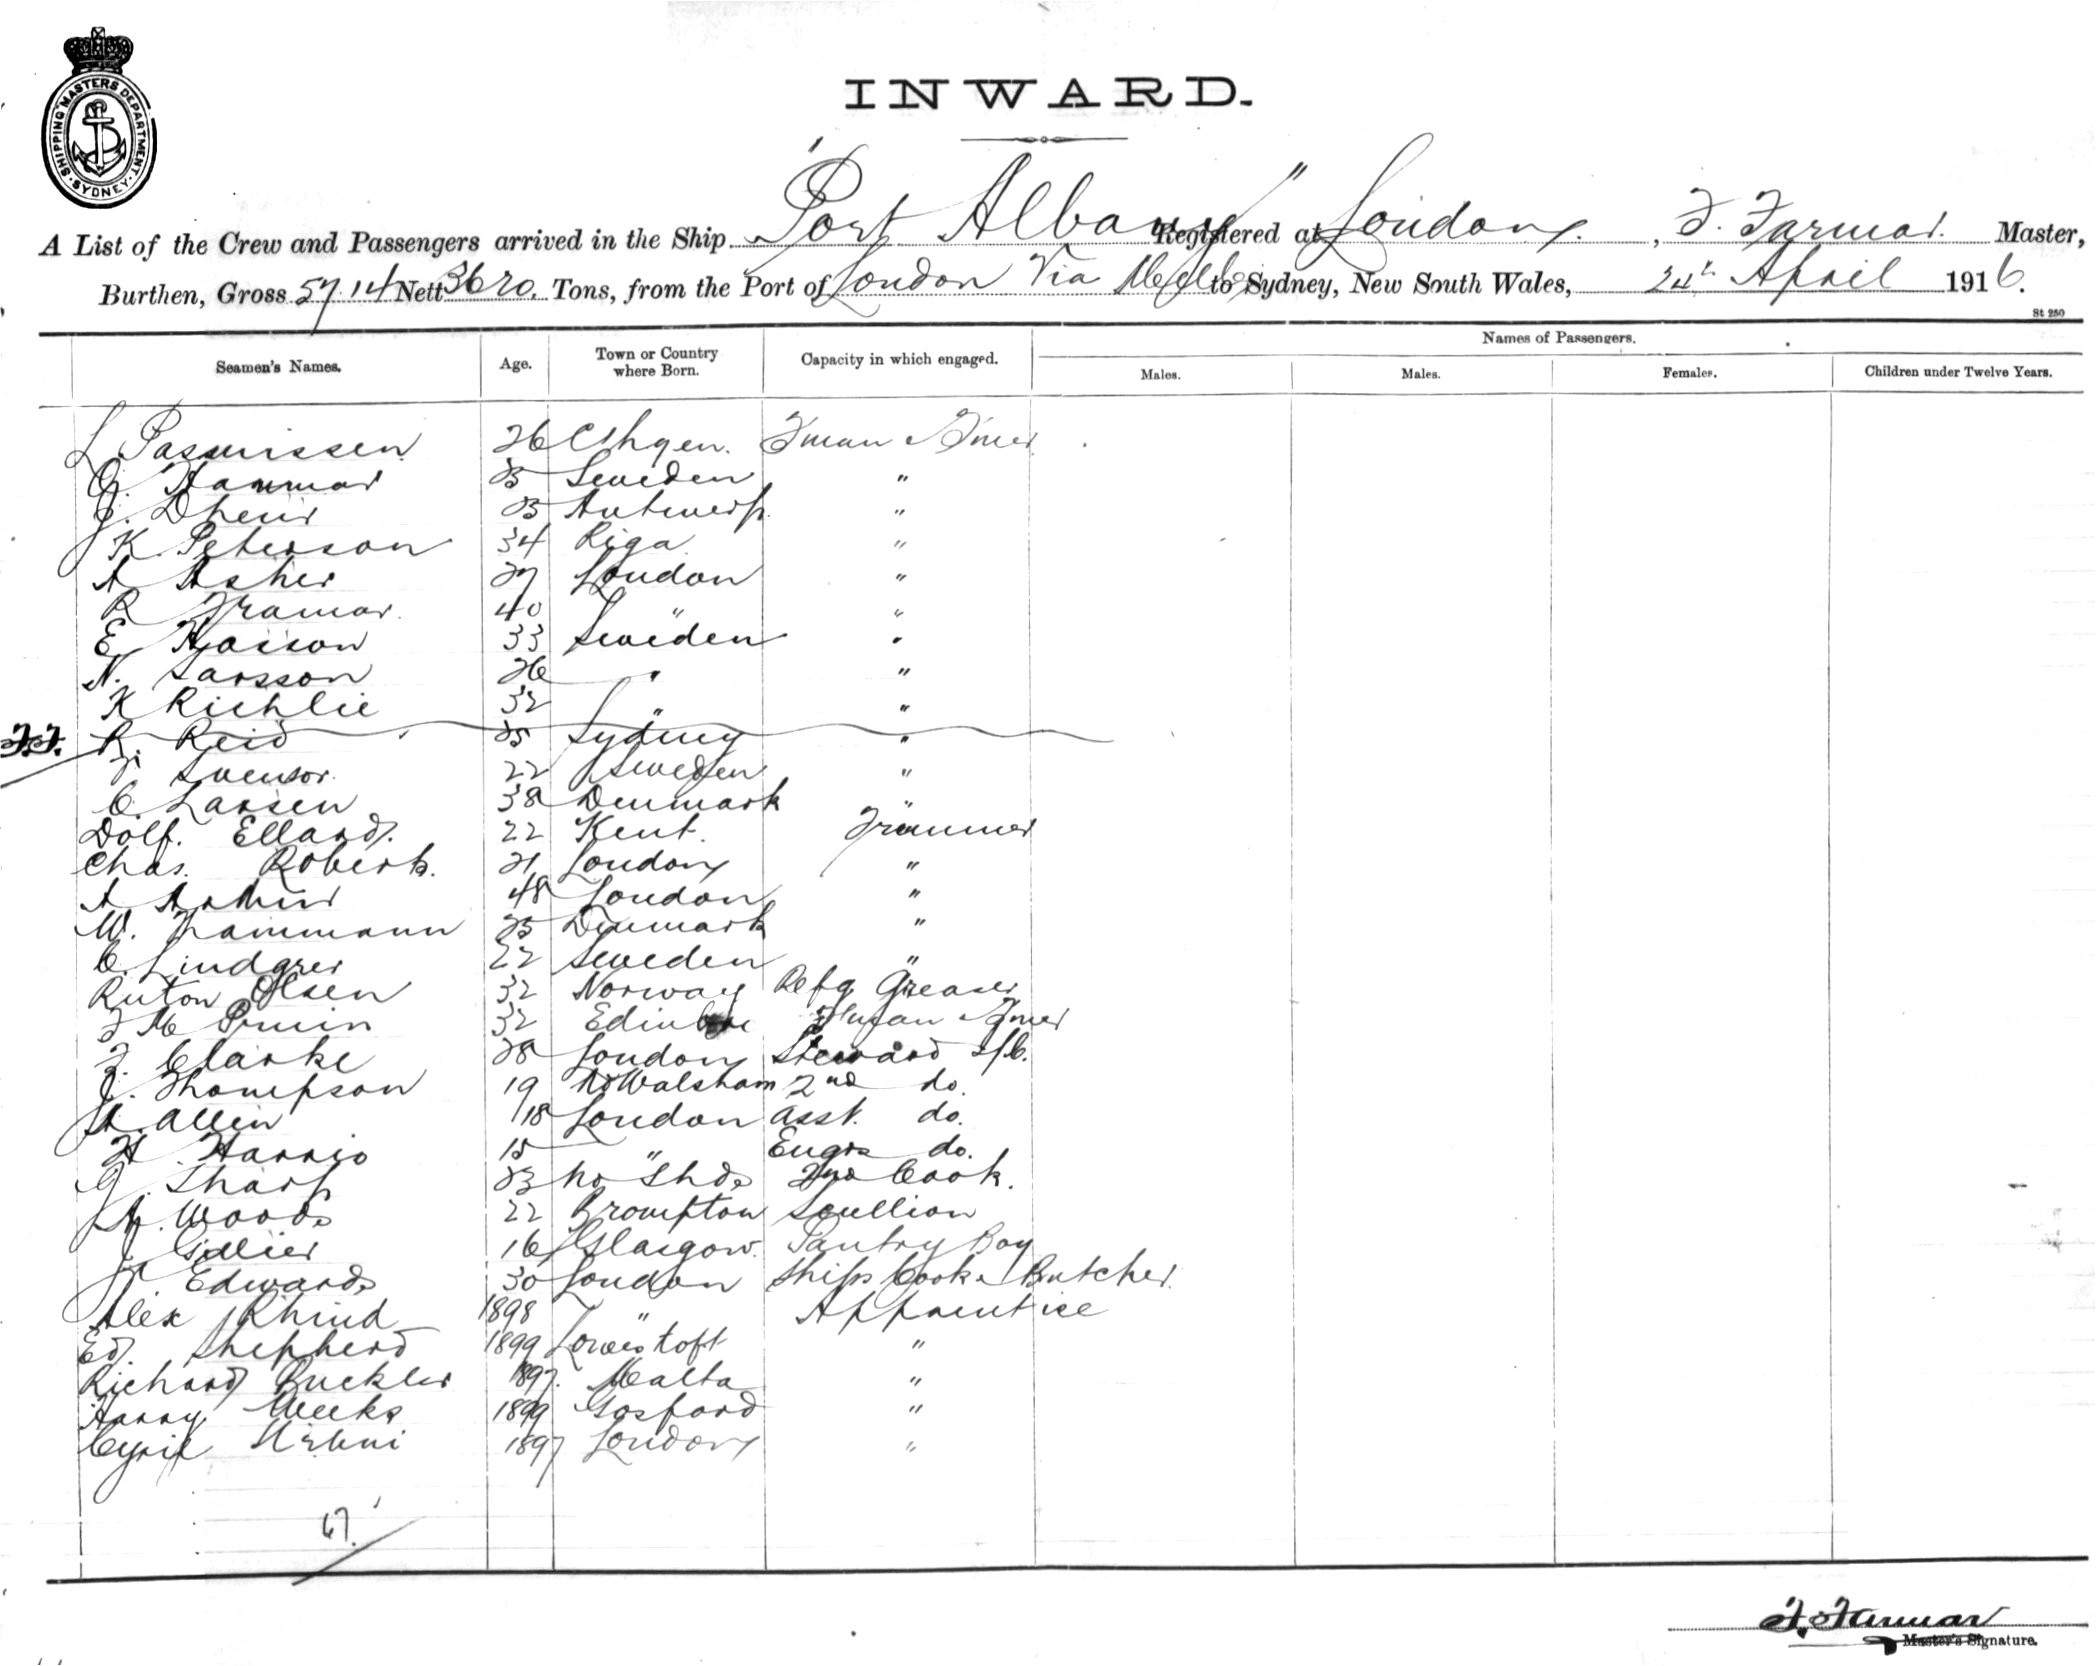 SHIPPING MASTERS DEPARTMENT. SYDNEY
INWARD.
A List of the Crew and Passengers arrived in the Ship "Port Albany" Registered at London, F. Farmar. Master,
Burthen, Gross 5714 Nett 3620. Tons, from the Port of London Via Melb to Sydney, New South Wales, 24th April 1916.
St 250
Names of Passengers.
Seamen's Names. Age. Town or Country where Born. Capacity in which engaged. Males. Males. Females. Children under Twelve Years.
L 26 Fman
Hammar 25 Sweden "
J. 25 Antwerp "
K. Peterson 34 Riga "
A Asher 27 London "
R 40 " "
E 33 Sweden "
N. Larsson 26 " "
K Richlie 32 " "
R. Reid 25 Sydney "
22 Sweden "
C. Larsen 38 Denmark "
Dolf. Ellard. 22 Kent. Trimmer
Chas. Roberts. 21 London "
A 48 London "
W. 25 Denmark "
C. 22 Sweden "
Olsen 32 Norway Refg Greaser
32
F. Clarke 28 London Steward
J. Thompson 19 N Walsham 2nd do.
A. Allen 18 London Asst. do.
H Harris 15 " Engrs do.
G. Sharp 23 No Shds 2nd Cook.
A. Woods 22 Brompton Scullion
J. 16 Glasgow. Pantry Boy
Edwards 30 London Ships Cook & Butcher.
Alex Rhind 1898 " Apprentice
Ed. Shepherd 1899 Lowestoft "
Richard Buckler 1897. Malta "
Harry Weeks 1899 Gosford "
Cyril 1897 London "
67.
F. Farmar
Master's Signature.